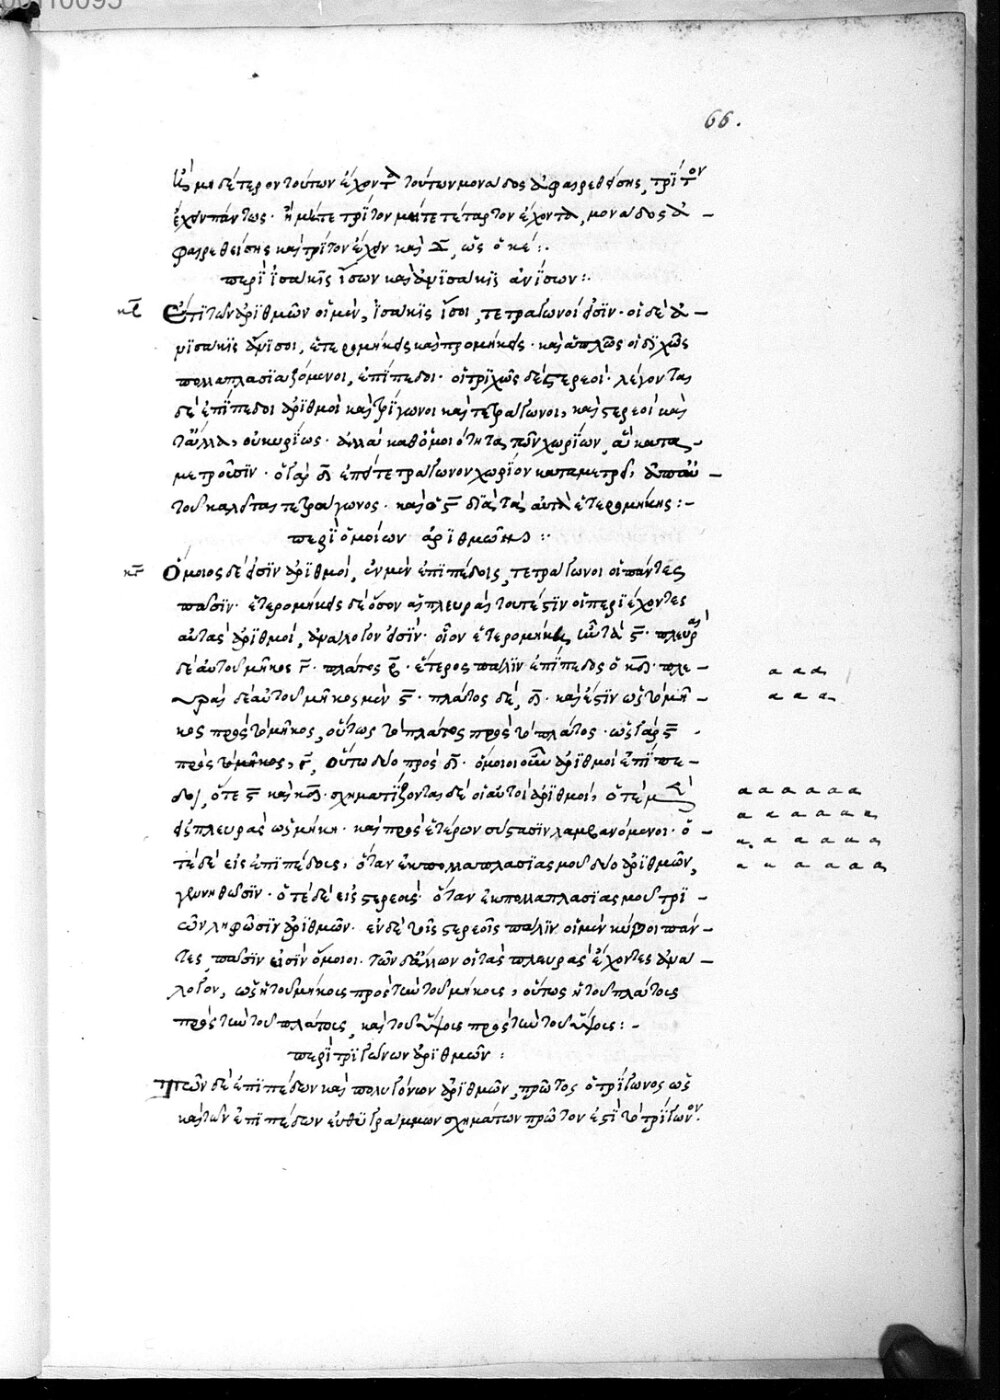 66.
ἢ μηδέτερον τούτων ἔχοντα τούτων μονάδος ἀφαιρεθείσης, τρίτον
ἔχειν πάντως· ἢ μήτε τρίτον μήτε τέταρτον ἔχοντα, μονάδος ἀ–
φαιρεθείσης καὶ τρίτον ἔχειν καὶ δ̄, ὡς ὁ κε̄:·
περὶ ἰσάκις ἴσων καὶ ἀνισάκις ἀνίσων:·
Ἔτι τῶν ἀριθμῶν οἱ μὲν, ἰσάκις ἴσοι, τετράγωνοί εἰσιν· οἱ δὲ ἀ–
νισάκις ἄνισοι, ἑτερομήκεις καὶ προμήκεις· καὶ ἁπλῶς οἱ διχῶς
πολλαπλασιαζόμενοι, ἐπίπεδοι· οἱ τριχῶς δὲ στερεοί· λέγονται
δὲ ἐπίπεδοι ἀριθμοὶ καὶ τρίγωνοι καὶ τετράγωνοι, καὶ στερεοὶ καὶ
τἄλλα, οὐ κυρίως· ἀλλὰ καθ' ὁμοιότητα τῶν χωρίων, ἃ κατα–
μετροῦσιν· ὁ γὰρ δ̄ ἐπεὶ τετράγωνον χωρίον καταμετρεῖ, ἀπ' αὐ–
τοῦ καλεῖται τετράγωνος· καὶ ὁ ϛ̄ διὰ τὰ αὐτὰ ἑτερομήκης:–
περὶ ὁμοίων ἀριθμῶν:·
Ὅμοιοι δέ εἰσιν ἀριθμοὶ, ἐν μὲν ἐπιπέδοις, τετράγωνοι οἱ πάντες
πᾶσιν· ἑτερομήκεις δὲ ὅσον αἱ πλευραὶ τουτέστιν οἱ περιέχοντες
αὐτὰς ἀριθμοὶ, ἀνάλογόν εἰσιν· οἷον ἑτερομήκης ἔστω ὁ ϛ̄· πλευρὰ
δὲ αὐτοῦ μῆκος γ̄· πλάτος β̄· ἕτερος πάλιν ἐπίπεδος ὁ κδ̄· πλε–
υραὶ δὲ αὐτοῦ μῆκος μὲν ϛ̄· πλάτος δὲ, δ̄· καὶ ἔστιν ὡς τὸ μῆ–
κος πρὸς τὸ μῆκος, οὕτως τὸ πλάτος πρὸς τὸ πλάτος· ὡς γὰρ ϛ̄
πρὸς τὸ μῆκος, γ̄, οὕτω δύο πρὸς δ̄· ὅμοιοι οὖν ἀριθμοὶ ἐπίπε–
δοι, ὅτε ϛ̄ καὶ κδ̄· σχηματίζονται δὲ οἱ αὐτοὶ ἀριθμοὶ, ὁτὲ μὲν
εἰς πλευρὰς ὡς μήκη· καὶ πρὸς ἑτέρων σύστασιν λαμβανόμενοι· ὁ–
τὲ δὲ εἰς ἐπιπέδους, ὅταν ἐκ πολλαπλασιασμοῦ δύο ἀριθμῶν,
γεννηθῶσιν· ὁτὲ δὲ εἰς στερεοὺς ὅταν ἐκ πολλαπλασιασμοῦ τρι–
ῶν ληφθῶσιν ἀριθμῶν· ἐν δὲ τοῖς στερεοῖς πάλιν οἱ μὲν κύβοι πάν–
τες, πᾶσίν εἰσιν ὅμοιοι· τῶν δ' ἄλλων οἱ τὰς πλευρὰς ἔχοντες ἀνά–
λογον, ὡς ἡ τοῦ μήκους πρὸς τὴν τοῦ μήκους, οὕτως ἡ τοῦ πλάτους
πρὸς τὴν τοῦ πλάτους, καὶ τοῦ ὕψους πρὸς τὴν τοῦ ὕψους:–
περὶ τριγώνων ἀριθμῶν:
Τῶν δὲ ἐπιπέδων καὶ πολυγόνων ἀριθμῶν, πρῶτος ὁ τρίγωνος ὡς
καὶ τῶν ἐπιπέδων εὐθυγράμμων σχημάτων πρῶτόν ἐστι τὸ τρίγωνον.
α α α
α α α
α α α α α α
α α α α α α
α α α α α α
α α α α α α